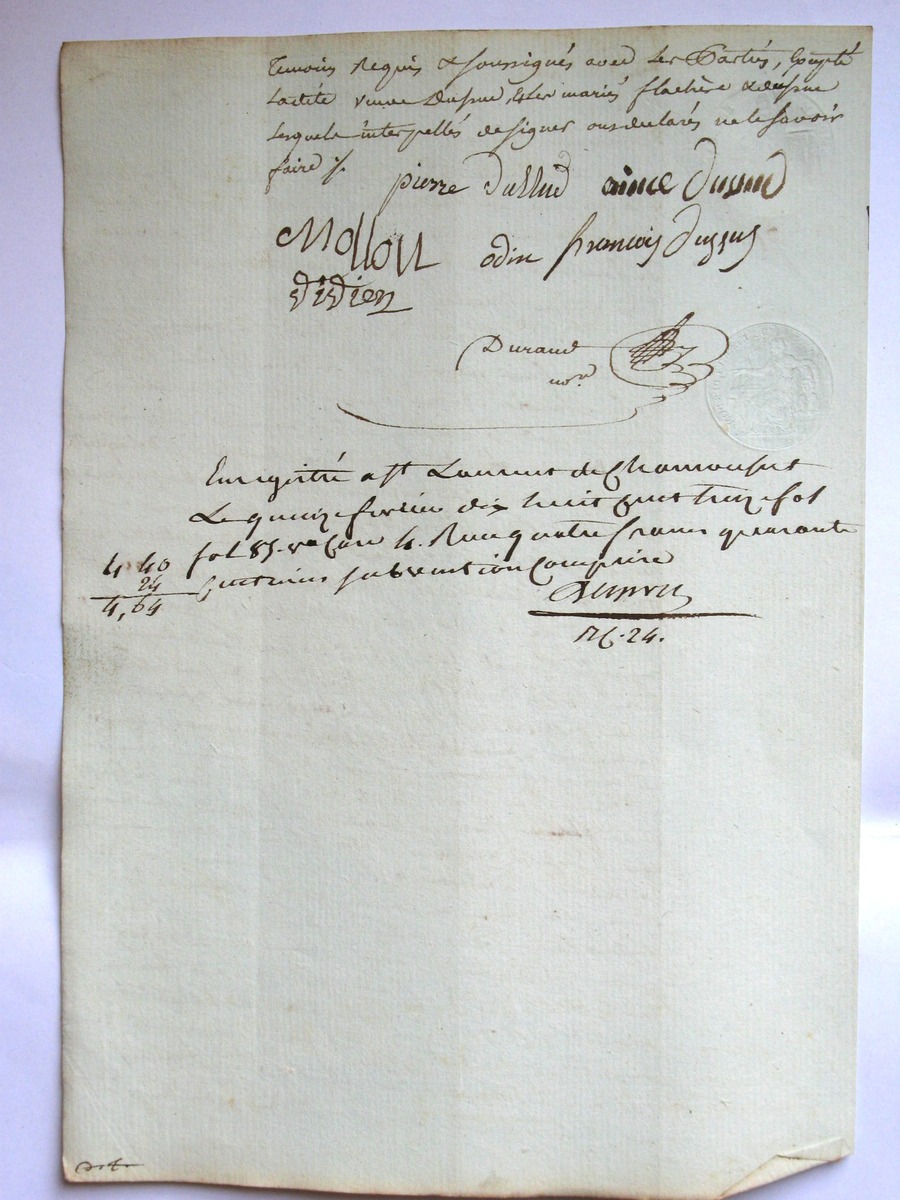 temoins Requis & soussignés avec les Parties, Excepté
ladite veuve Dussud, & les mariés flachère & dussud
lesquels interpellés de signer ont déclarés ne le savoir
faire ./.
pierre Dussud aimé Dussud
Mollon odin françois Dussud
didier
Durand
nore
Enregistré a St Laurent de Chamousset
Le quinze fevrier dix huit cent treize fol
fol 85. vo Case 4. Reçu quatre francs quarante
4 40
Centimes subvention Comprise
24
4,64
Rc. 24.